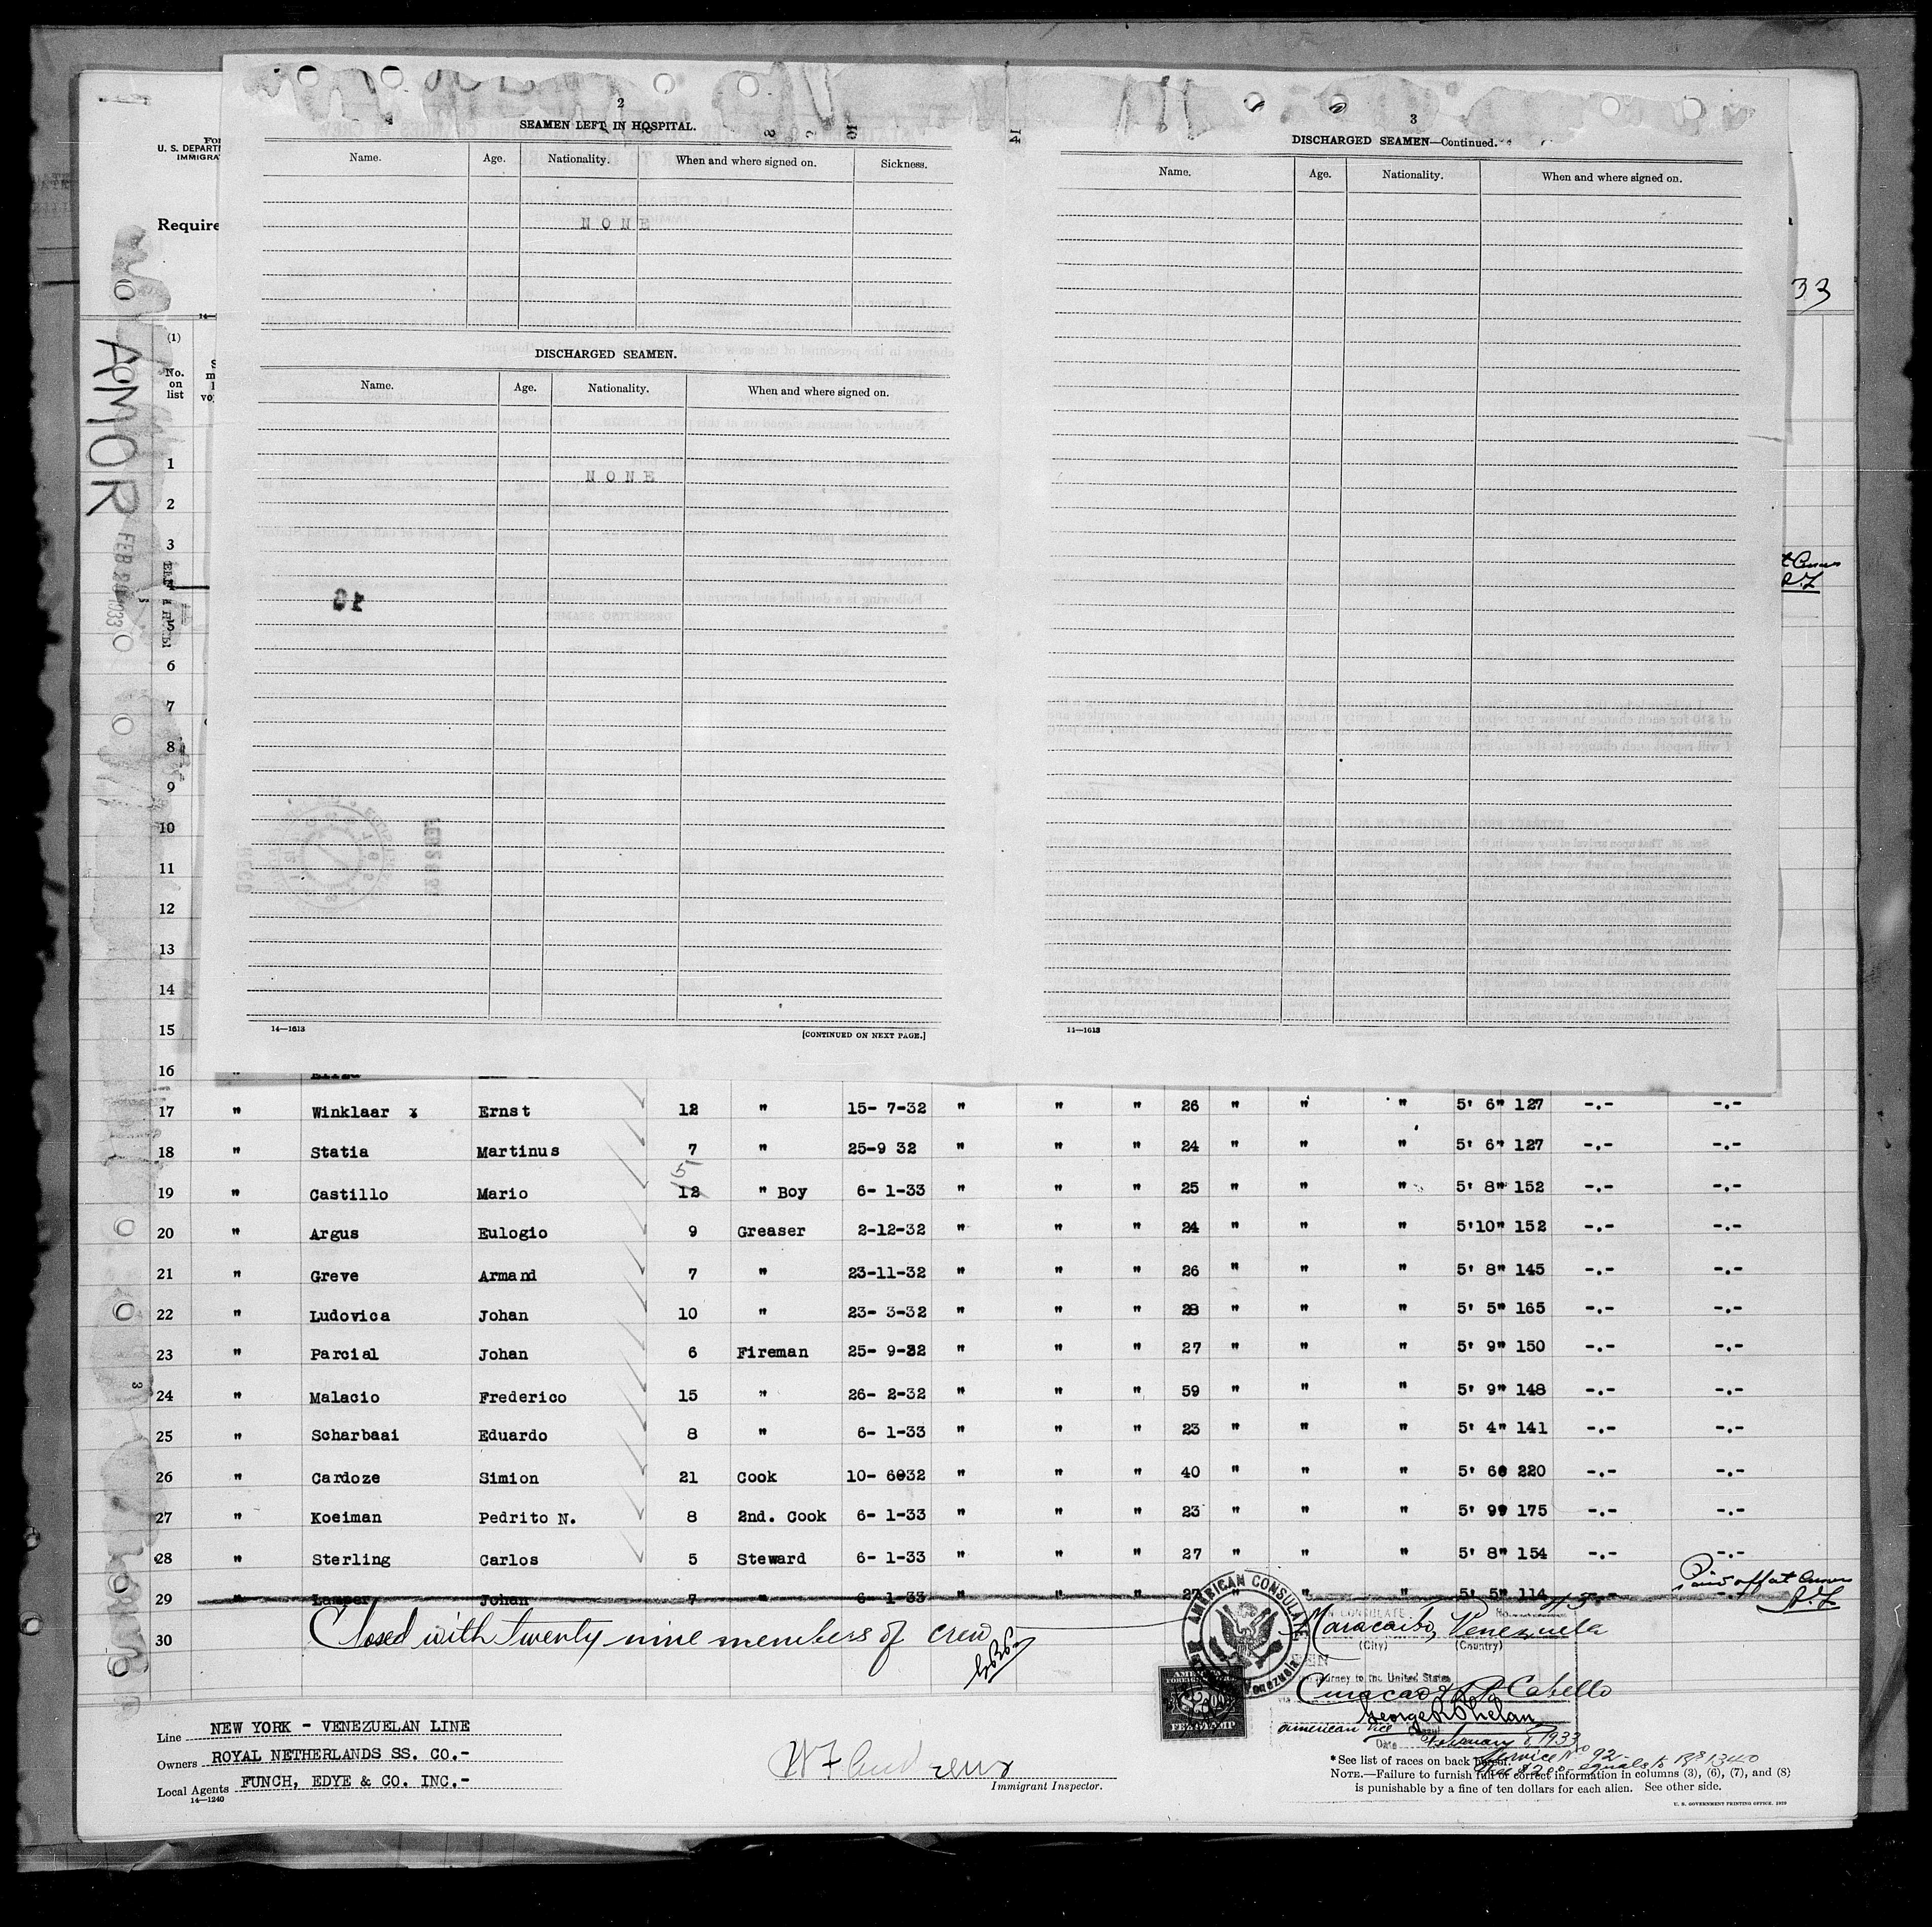 2
SEAMEN LEFT IN HOSPITAL.
Name. Age. Nationality. When and where signed on. Sickness.
NONE
DISCHARGED SEAMEN.
Name. Age. Nationality. When and where signed on.
NONE
14—1613
[CONTINUED ON NEXT PAGE.]
3
DISCHARGED SEAMEN—Continued.
Name. Age. Nationality. When and where signed on.
14—1613
U. S. DEPART
IMMIGRA
Require
33
AMOR
(1)
No.
on
list
1
2
3
4
5
6
7
8
9
10
11
12
13
14
15
16
17 " Winklaar x Ernst 12 " 15- 7-32 " " " 26 " " " 5' 6" 127 -.- -.-
18 " Statia Martinus 7 " 25-9 32 " " " 24 " " " 5' 6" 127 -.- -.-
5
19 " Castillo Mario 12 " Boy 6- 1-33 " " " 25 " " " 5' 8" 152 -.- -.-
20 " Argus Eulogio 9 Greaser 2-12-32 " " " 24 " " " 5'10" 152 -.- -.-
21 " Greve Armand 7 " 23-11-32 " " " 26 " " " 5' 8" 145 -.- -.-
22 " Ludovica Johan 10 " 23- 3-32 " " " 28 " " " 5' 5" 165 -.- -.-
23 " Parcial Johan 6 Fireman 25- 9-32 " " " 27 " " " 5' 9" 150 -.- -.-
24 " Malacio Frederico 15 " 26- 2-32 " " " 59 " " " 5' 9" 148 -.- -.-
25 " Scharbaai Eduardo 8 " 6- 1-33 " " " 23 " " " 5' 4" 141 -.- -.-
26 " Cardoze Simion 21 Cook 10- 6-32 " " " 40 " " " 5' 6" 220 -.- -.-
27 " Koeiman Pedrito N. 8 2nd. Cook 6- 1-33 " " " 23 " " " 5' 9" 175 -.- -.-
28 " Sterling Carlos 5 Steward 6- 1-33 " " " 27 " " " 5' 8" 154 -.- -.-
29 " Lamper Johan 7 " 6-1-33 " " " 27 " " " 5' 5" 114 -.-
Paid off at
30 Closed with twenty nine members of crew
AMERICAN CONSULATE
Maracaibo, Venezuela
(City) (Country)
journey to the United States
Curacao & Pto Cabello
George R Phelan
American Vice
Date February 8, 1933
Service No 92
FEE STAMP
Line NEW YORK - VENEZUELAN LINE
Owners ROYAL NETHERLANDS SS. CO.-
Local Agents FUNCH, EDYE & CO. INC.-
14—1240
Immigrant Inspector.
*See list of races on back
NOTE.—Failure to furnish full or correct information in columns (3), (6), (7), and (8)
is punishable by a fine of ten dollars for each alien. See other side.
U. S. GOVERNMENT PRINTING OFFICE.